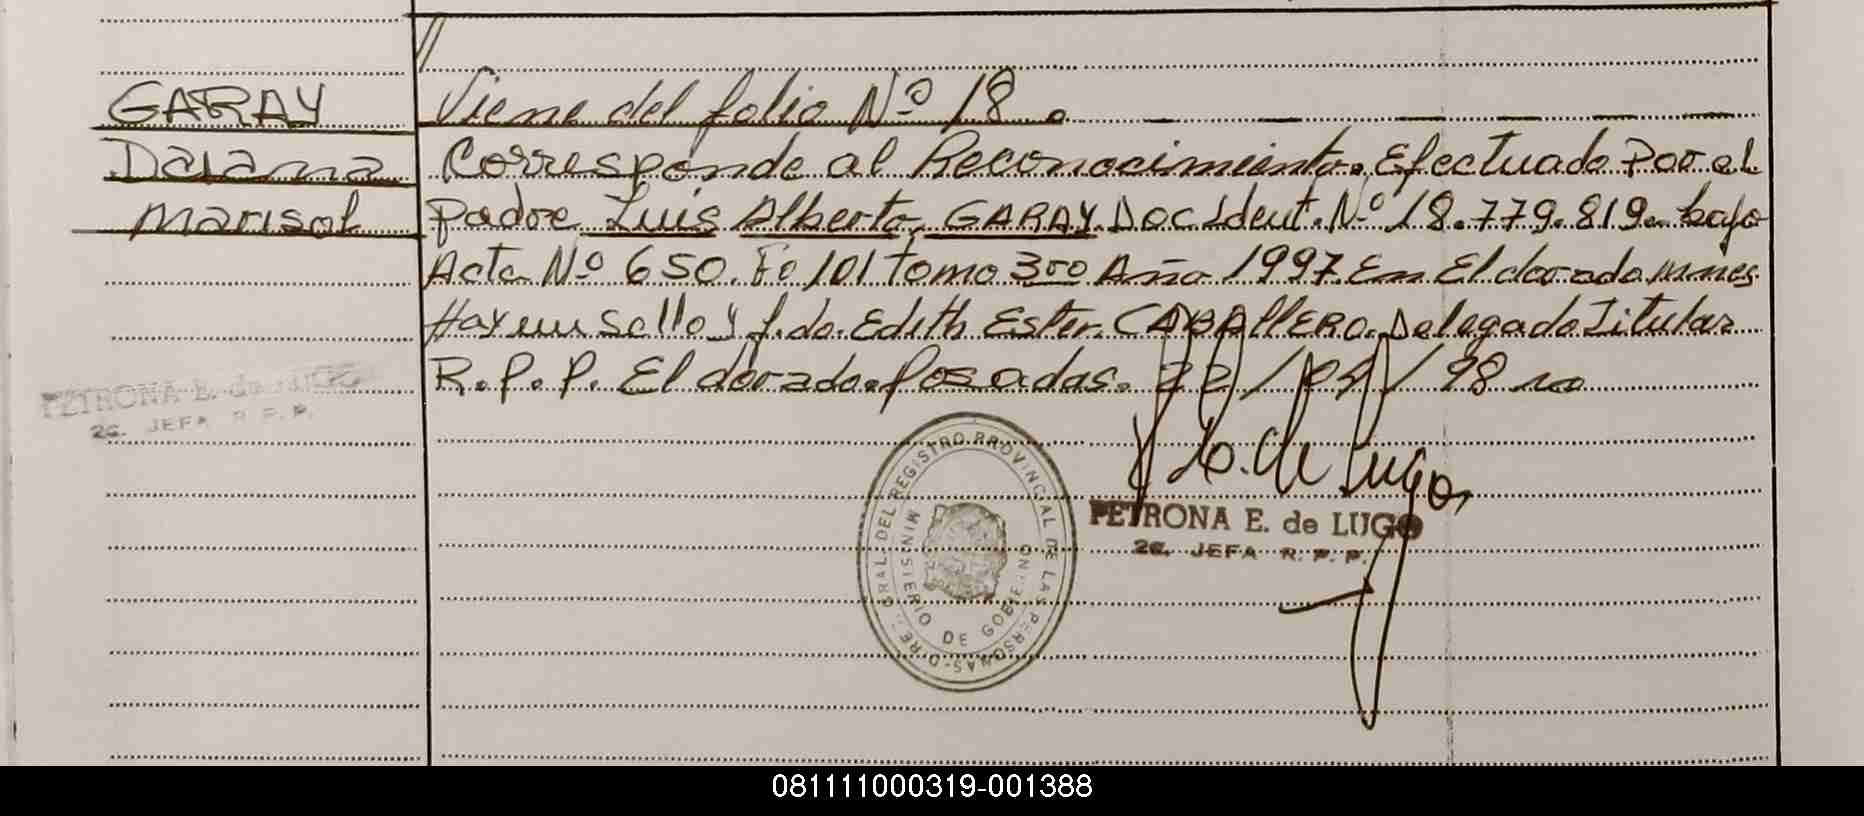 //
GARAY
Daiana
Marisol
Viene del folio Nº 18.
Corresponde al Reconocimiento. Efectuado Por el
padre Luis Alberto, GARAY. Doc Ident. Nº 18.779.819. bajo
Acta Nº 650. Fo 101 Tomo 3ro Año 1997. En Eldorado Mnes.
Hay un Sello y f.do. Edith Ester. CABAllERO. Delegado Titular
R.P.P. Eldorado. Posadas. 22/04/98
PETRONA E. de LUGO
2a. JEFA R.P.P.
DIREC. GRAL. DEL REGISTRO PROVINCIAL DE LAS PERSONAS
MINISTERIO DE GOBIERNO
de Lugo
PETRONA E. de LUGO
2a. JEFA R.P.P.
081111000319-001388